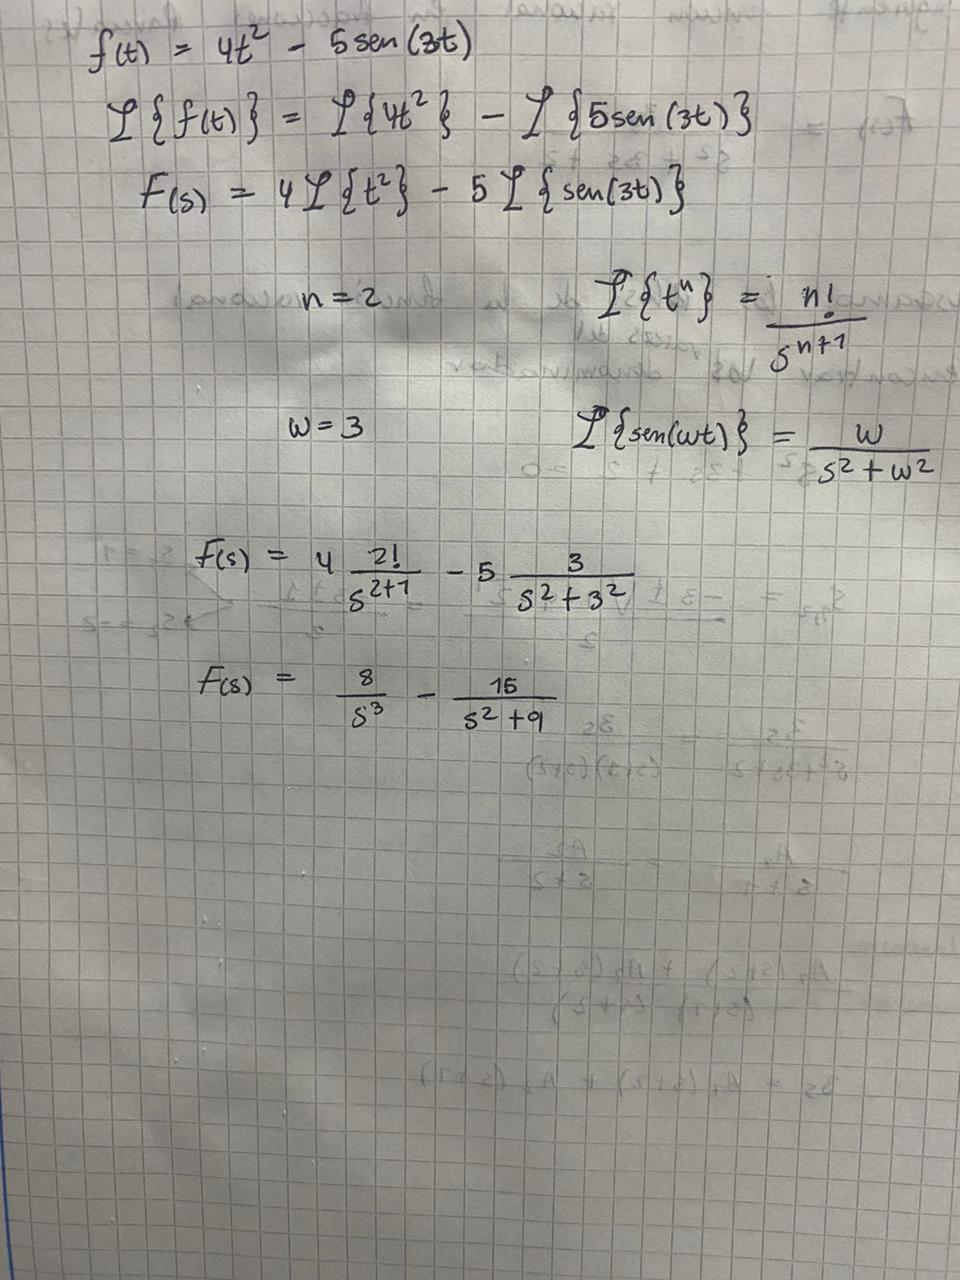 f(t) = 4t² - 5 sen(3t)
ℒ{f(t)} = ℒ{4t²} - ℒ{5sen(3t)}
F(s) = 4ℒ{t²} - 5ℒ{sen(3t)}
n = 2 ℒ{tⁿ} = n! / s^(n+1)
w = 3 ℒ{sen(wt)} = w / (s² + w²)
F(s) = 4 2! / s^(2+1) - 5 3 / (s² + 3²)
F(s) = 8 / s³ - 15 / (s² + 9)